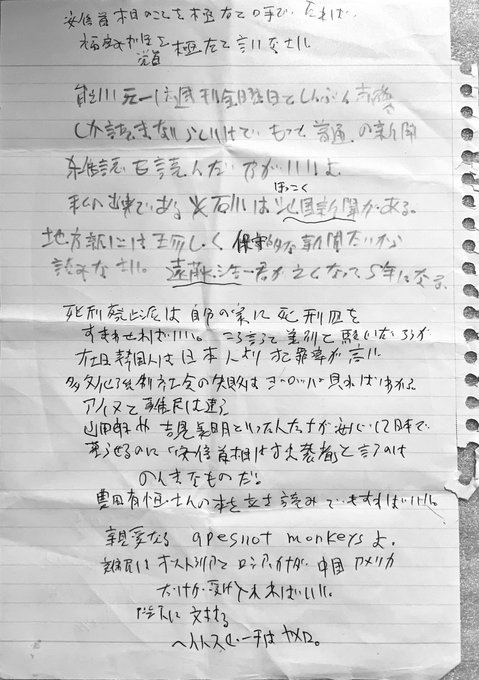 安倍首相のことを極右と呼びたければ、
福島みずほを極左と言いなさい
党首
は週刊金曜日としんぶん赤旗
しか読まないらしいけど、もっと普通の新聞
雑誌も読んだ方がいいよ
私の出身である石川は北国新聞がある。
ほっこく
地方新聞には珍しく保守的な新聞だから
読みなさい。遠藤 君が亡くなって5年になる
死刑廃止派は自分の家に死刑囚を
すまわせればいい。こう言うと差別と騒いだろうが
在日韓国人は日本人より犯罪率が高い
多文化共創社会の失敗はヨーロッパ見ればわかる
アイヌと難民は違う
吉見義明といった人たちが安心して日本で
暮らせるのに「安倍首相は 独裁者」と言うのは
のんきなものだ!
豊田有恒さんの本を立ち読みでもすればいい。
親愛なる apesnot monkeysよ。
難民はオーストラリアとロシアとカナダ、中国、アメリカ
だけが受け入れればいい。
陛下に対する
ヘイトスピーチはヤメロ。